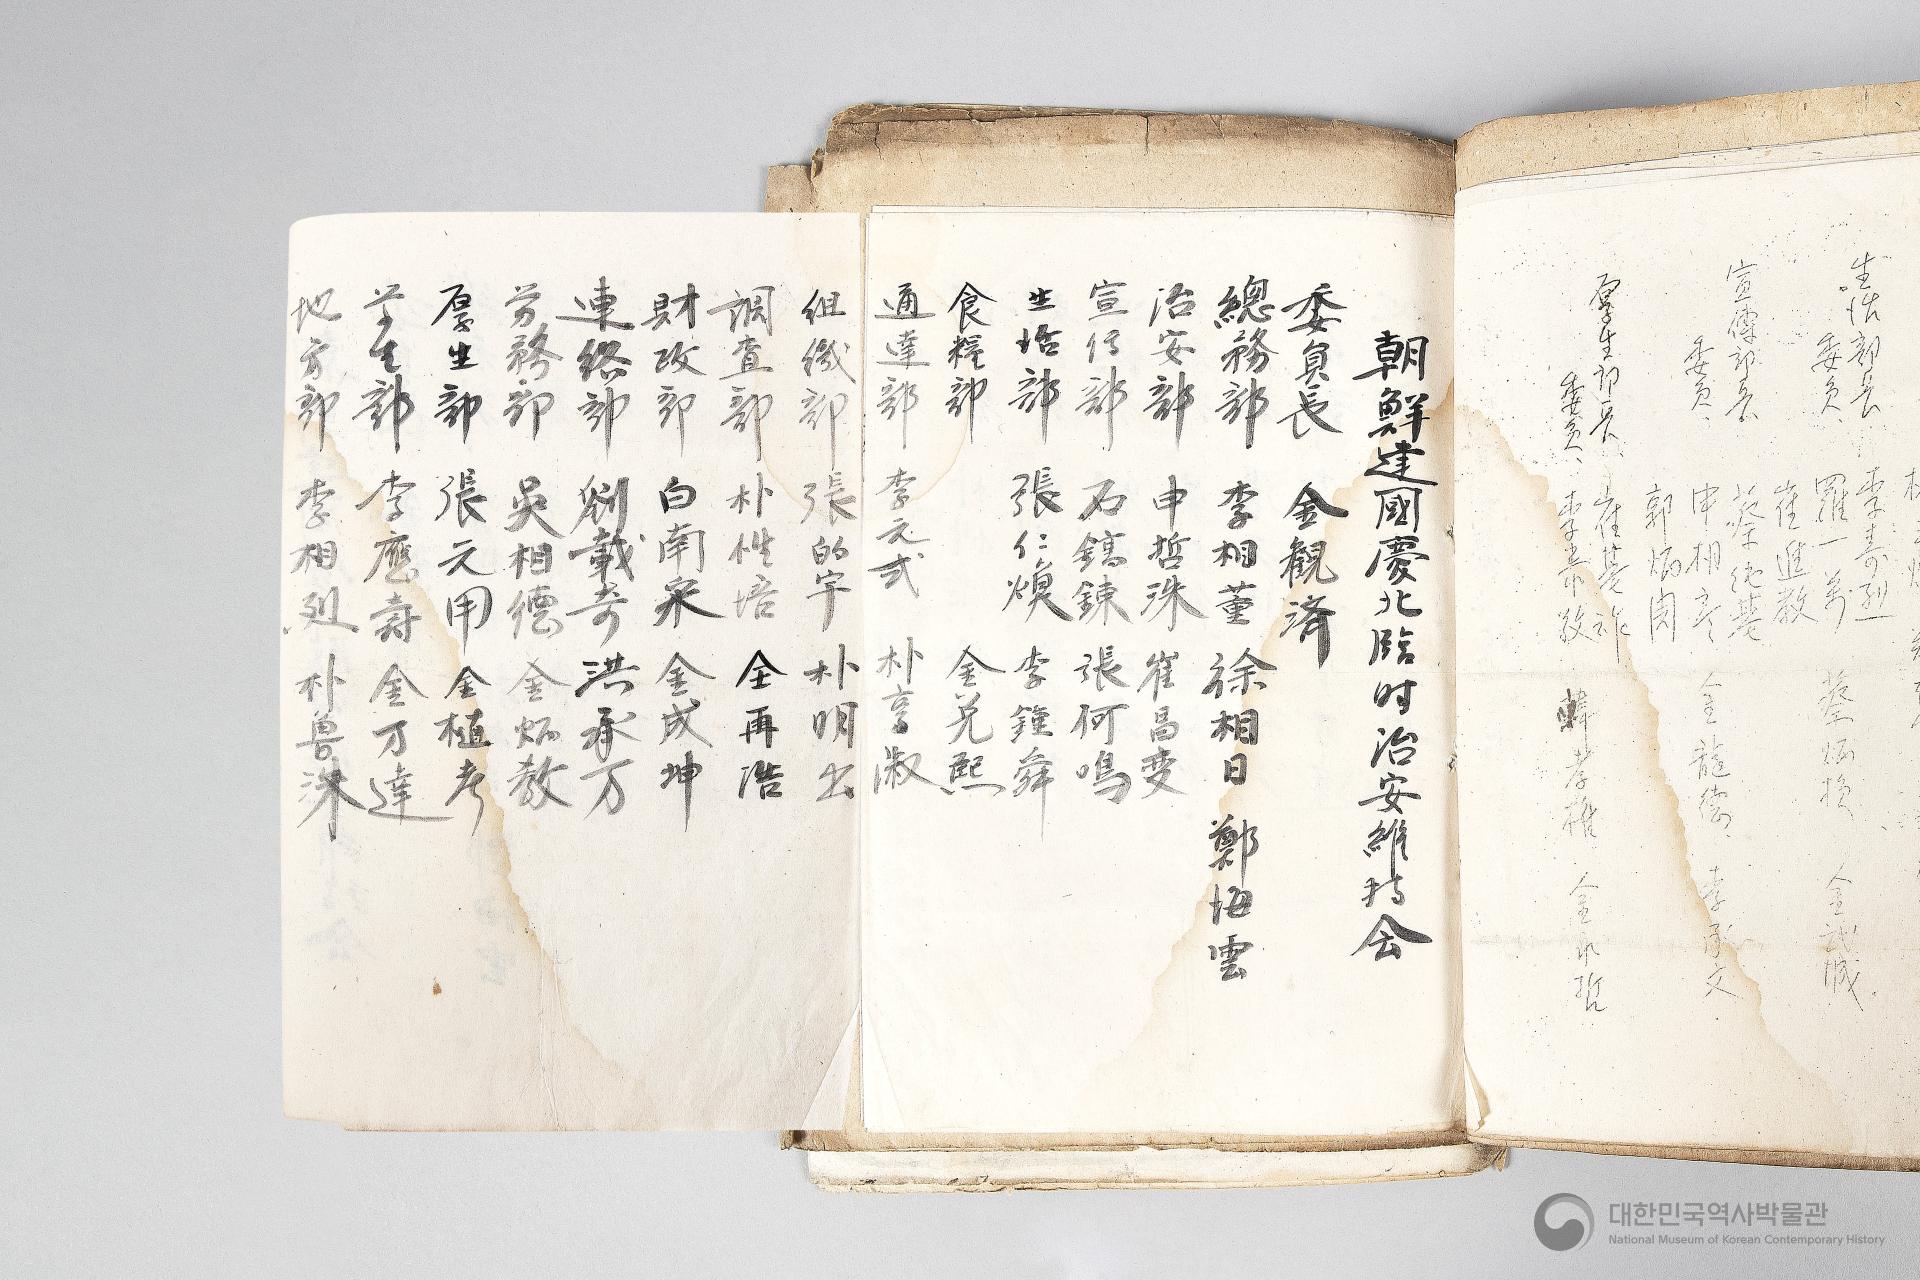 生活部長 李壽烈
委員 羅一萬 蔡炳換 金試
崔進敎
宣傳部長 蔡
委員 申相 金龍德 李承文
郭炳周
厚生部長 崔
委員 李 韓孝 金 哲
朝鮮建國慶北臨时治安維持会
委員長 金観済
總務部 李相董 徐相日 鄭海雲
治安部 申哲洙 崔昌変
宣伝部 石鎬錬 張何鳴
生活部 張仁煥 李鐘舜
食糧部 金兌熙
通達部 李元式 朴亨淑
組織部 張的宇 朴明出
調査部 朴性培 金再浩
財政部 白南采 金成坤
連絡部 劉載奇 洪承万
労務部 吳相德 金炳教
厚生部 張元用 金植考
学生部 李應壽 金万達
地方部 李相烈 朴魯洙
대한민국역사박물관
National Museum of Korean Contemporary History